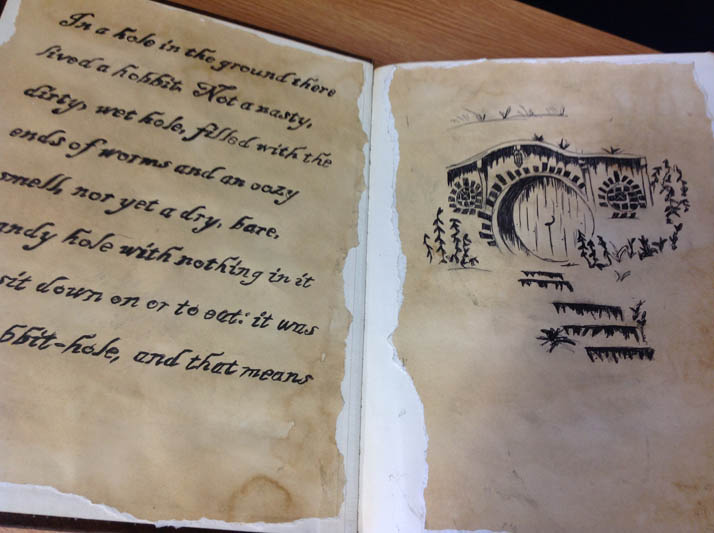 In a hole in the ground there
lived a hobbit. Not a nasty,
dirty, wet hole, filled with the
ends of worms and an oozy
smell, nor yet a dry, bare,
andy hole with nothing in it
sit down on or to eat: it was
bbit-hole, and that means